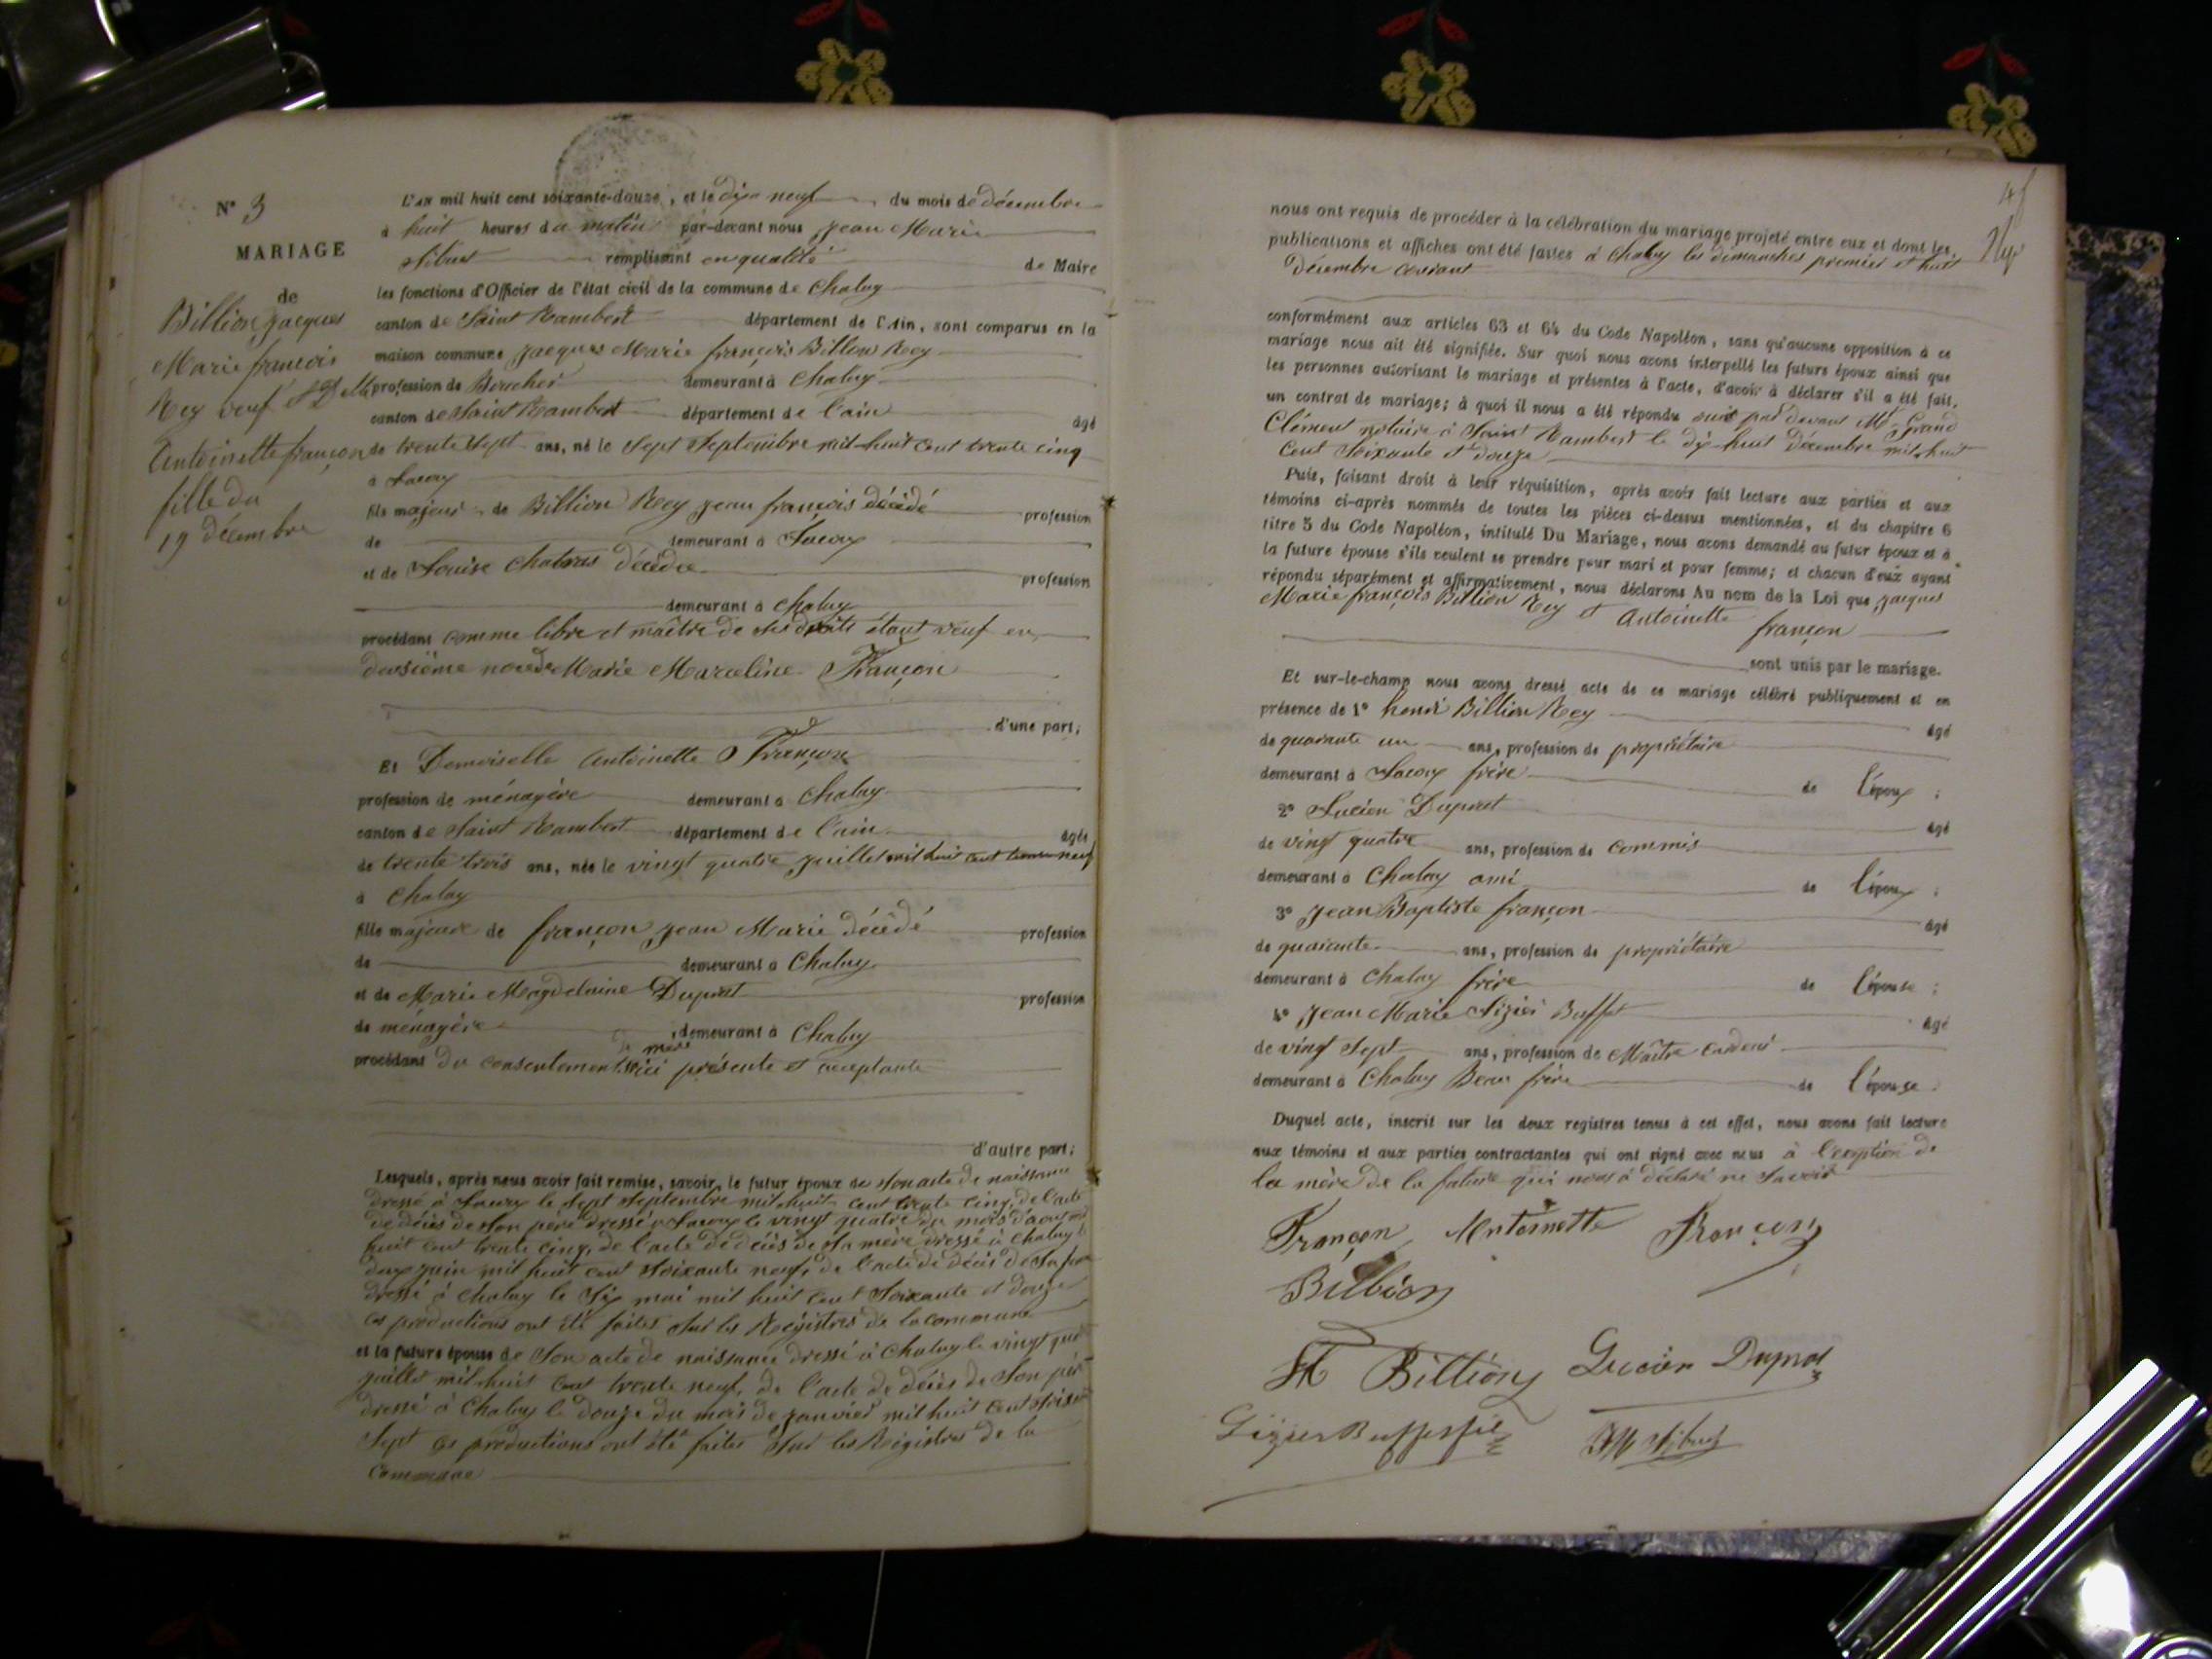 N° 3
MARIAGE
de
Billion Jacques
Marie françois
Rey veuf & Delle
Antoinette françon
fille du
19 décembre
L'AN mil huit cent soixante-douze, et le dix neuf du mois de décembre
à huit heures du matin par-devant nous Jean Marie
Sibuet remplissant en qualité de Maire
les fonctions d'Officier de l'état civil de la commune de Chaley
canton de Saint Rambert département de l'Ain, sont comparus en la
maison commune Jacques Marie françois Billion Rey
profession de Boucher demeurant à Chaley
canton de Saint Rambert département de l'ain âgé
de trente sept ans, né le sept Septembre mil huit cent trente cinq
à
fils majeur de Billion Rey Jean françois décédé profession
de demeurant à
et de Louise décédée profession
demeurant à Chaley
procédant comme libre et maître de ses droits étant veuf en
deusième noce de Marie Marceline Françon
d'une part;
Et Demoiselle Antoinette Françon
profession de ménagère demeurant à Chaley
canton de Saint Rambert département de l'ain âgée
de trente trois ans, née le vingt quatre juillet mil huit cent trente neuf
à Chaley
fille majeure de françon Jean Marie décédé profession
de demeurant à Chaley
et de Marie Magdelaine Duprat profession
de ménagère demeurant à Chaley
mère
procédant du consentement de sa ici présente et acceptante
d'autre part;
Lesquels, après nous avoir fait remise, savoir, le futur époux de son acte de naissance
dressé à le sept septembre mil huit cent trente cinq, de l'acte
de décès de son père dressé à le vingt quatre du mois d'aout mil
huit cent trente cinq, de l'acte de décès de sa mère dressé à Chaley le
deux juin mil huit cent soixante neuf, de l'acte de décès de sa
dressé à Chaley le six mai mil huit cent soixante et douze
ces productions ont été faites sur les Régistres de la commune
et la future épouse de son acte de naissance dressé à Chaley le vingt
juillet mil huit cent trente neuf, de l'acte de décès de son père
dressé à Chaley le douze du mois de janvier mil huit cent
sept ces productions ont été faites sur les Régistres de la
commune
nous ont requis de procéder à la célébration du mariage projeté entre eux et dont les
publications et affiches ont été faites à Chaley les dimanches premier et huit
Décembre courant
conformément aux articles 63 et 64 du Code Napoléon, sans qu'aucune opposition à ce
mariage nous ait été signifiée. Sur quoi nous avons interpellé les futurs époux ainsi que
les personnes autorisant le mariage et présentes à l'acte, d'avoir à déclarer s'il a été fait
un contrat de mariage; à quoi il nous a été répondu oui par devant Me Grand
Clément notaire à Saint Rambert le dix huit Décembre mil huit
cent soixante et douze
Puis, faisant droit à leur réquisition, après avoir fait lecture aux parties et aux
témoins ci-après nommés de toutes les pièces ci-dessus mentionnées, et du chapitre 6
titre 5 du Code Napoléon, intitulé Du Mariage, nous avons demandé au futur époux et à
la future épouse s'ils veulent se prendre pour mari et pour femme; et chacun d'eux ayant
répondu séparément et affirmativement, nous déclarons Au nom de la Loi que Jacques
Marie françois Billion Rey et Antoinette françon
sont unis par le mariage.
Et sur-le-champ nous avons dressé acte de ce mariage célébré publiquement et en
présence de 1° henri Billion Rey âgé
de quarante un ans, profession de propriétaire
demeurant à frère de l'époux ;
2° Lucien Duprat âgé
de vingt quatre ans, profession de commis
demeurant à Chaley ami de l'époux ;
3° Jean Baptiste françon âgé
de quarante ans, profession de propriétaire
demeurant à Chaley frère de l'épouse ;
4° Jean Marie Lizier Buffet âgé
de vingt sept ans, profession de Maître cardeur
demeurant à Chaley Beau frère de l'épouse.
Duquel acte, inscrit sur les deux registres tenus à cet effet, nous avons fait lecture
aux témoins et aux parties contractantes qui ont signé avec nous à l'exception de
la mère de la future qui nous a déclaré ne savoir
Françon Antoinette Françon
Billion
H Billion Lucien Duprat
Lizier Buffet fils JM Sibuet